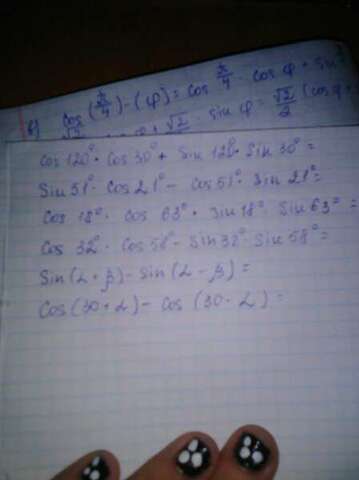 в) cos (π/4) - (φ) = cos π/4 · cos φ + sin
√2/2 · sin φ = √2/2 (cos φ +
Cos 120° · Cos 30° + Sin 120° · Sin 30° =
Sin 51° · Cos 21° - Cos 51° · Sin 21° =
Cos 18° · Cos 63° + Sin 18° · Sin 63° =
Cos 32° · Cos 58° - Sin 32° · Sin 58° =
Sin (α + β) - Sin (α - β) =
Cos (30 + α) - Cos (30 - α) =